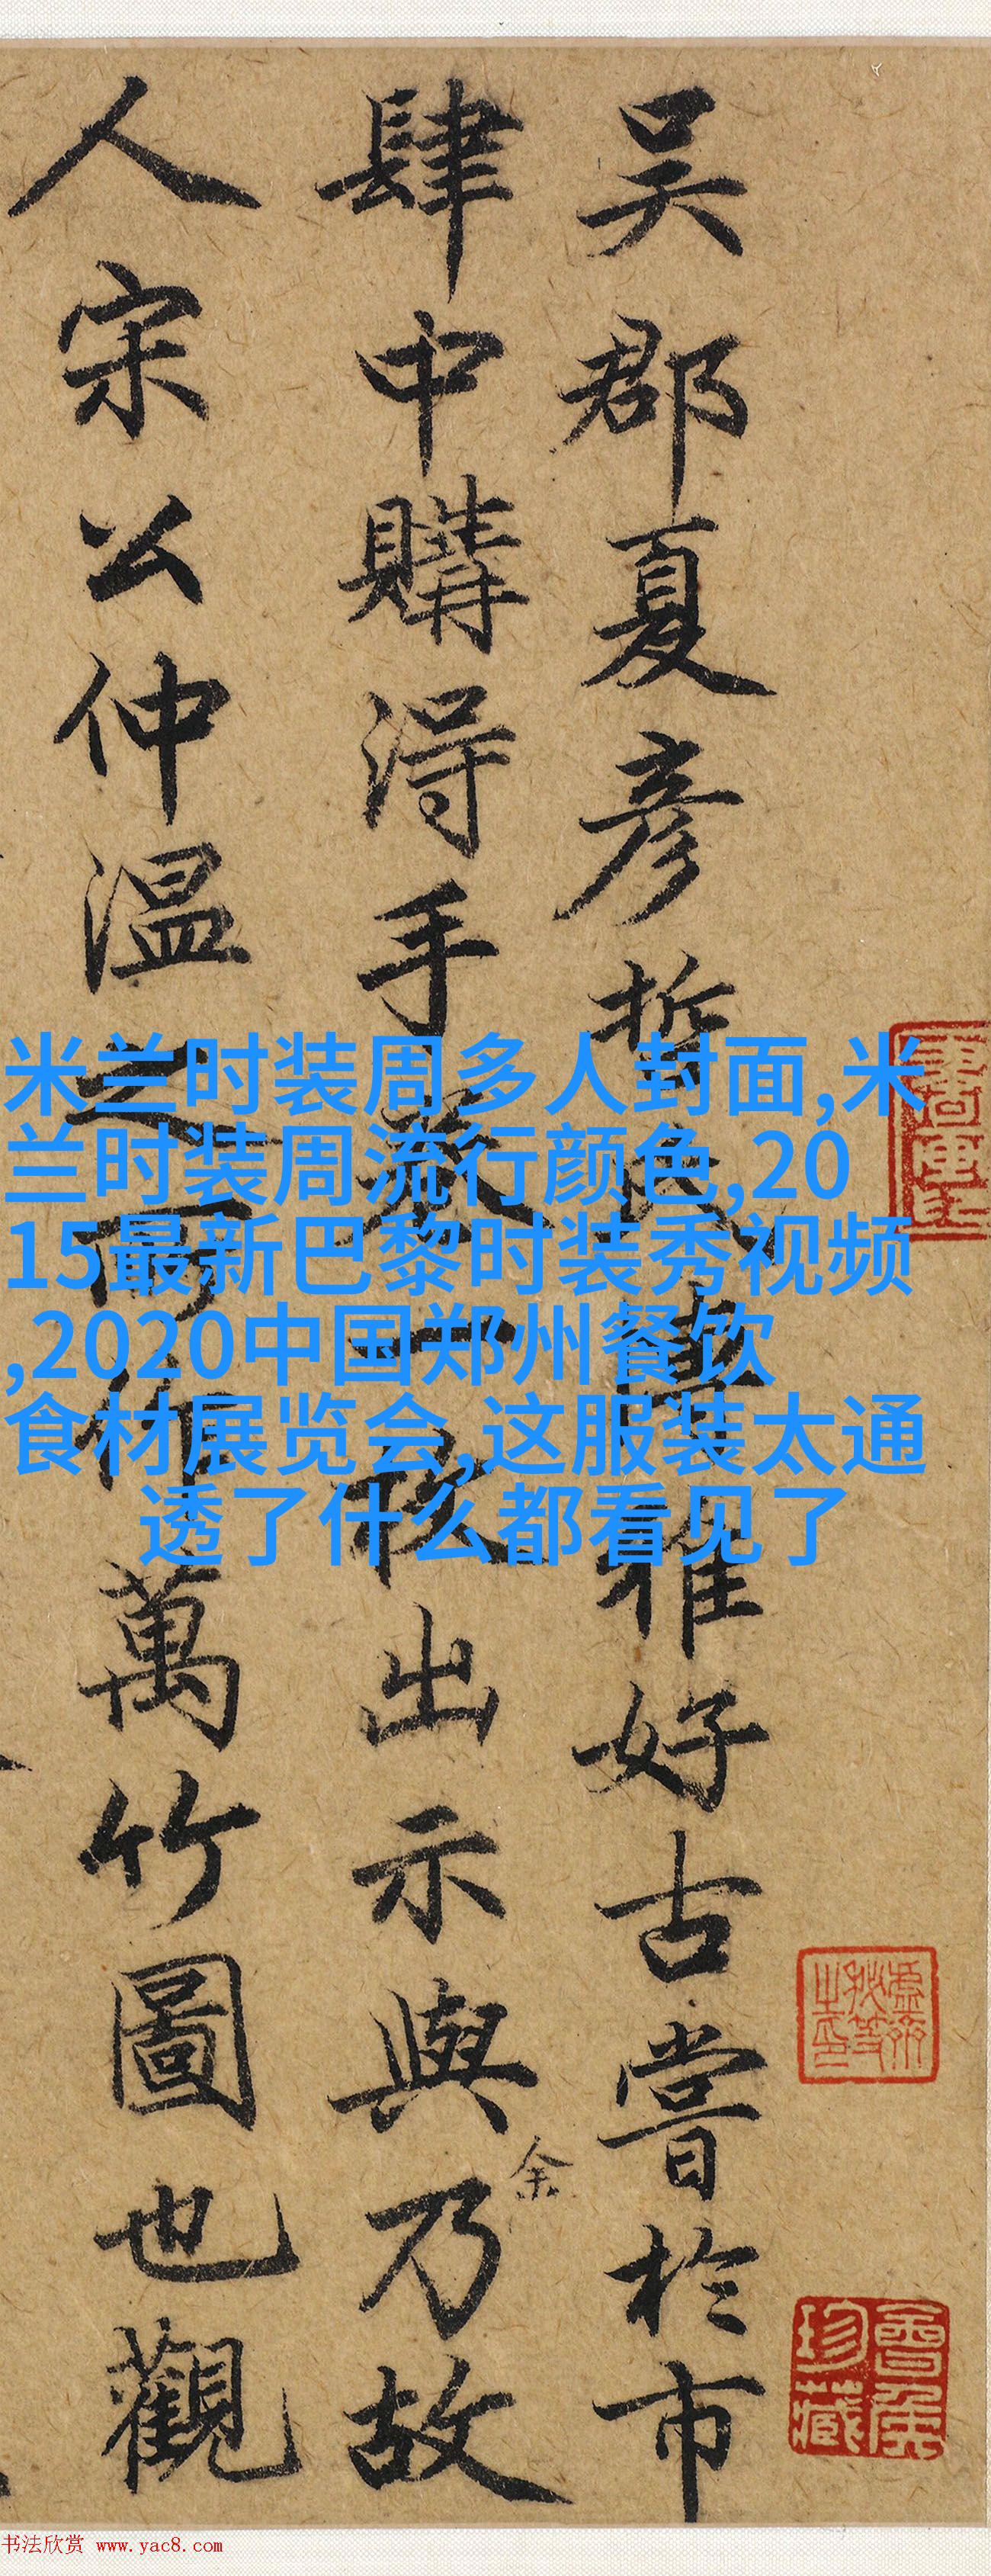 吴郡夏彦哲氏雅好古嘗於市
肆中購得手卷一出示與乃故
余
人宋公仲温之所作萬竹圖也觀
米兰时装周多人封面,米
兰时装周流行颜色,20
15最新巴黎时装秀视频
,2020中国郑州餐饮
食材展览会,这服装太通
透了什么都看见了
书法欣赏 www.yac8.com